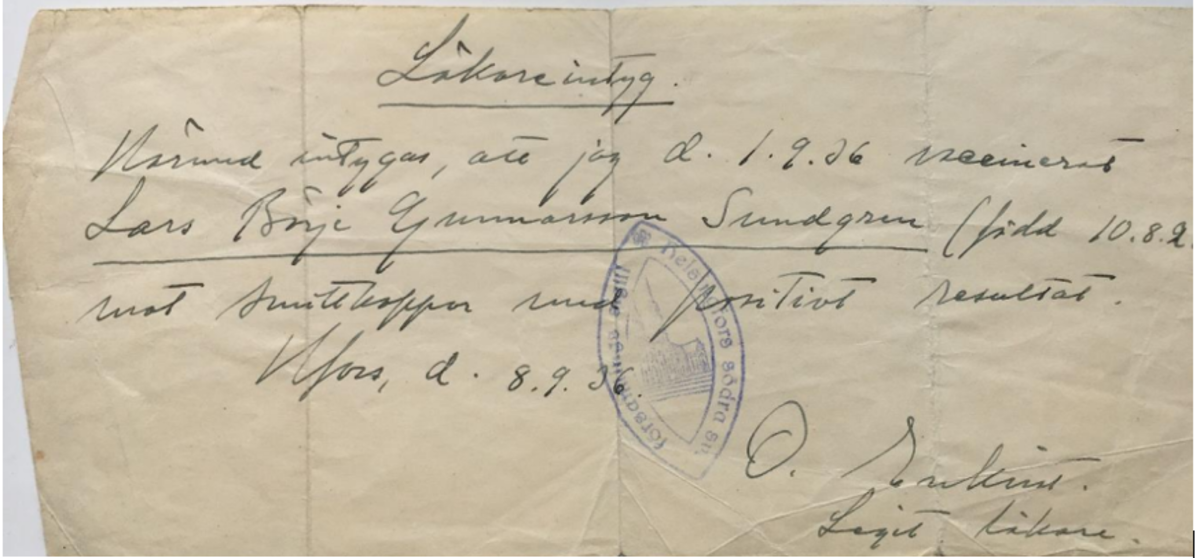 Läkareintyg.
Härmed intygas, att jag d. 1.9.36 vaccinerat
Lars Börje Gunnarsson Sundgren (född 10.8.2
mot smittkoppor med positivt resultat.
Hfors, d. 8.9.36.
Helsingfors södra sv.
församling
O.
Legit. läkare.